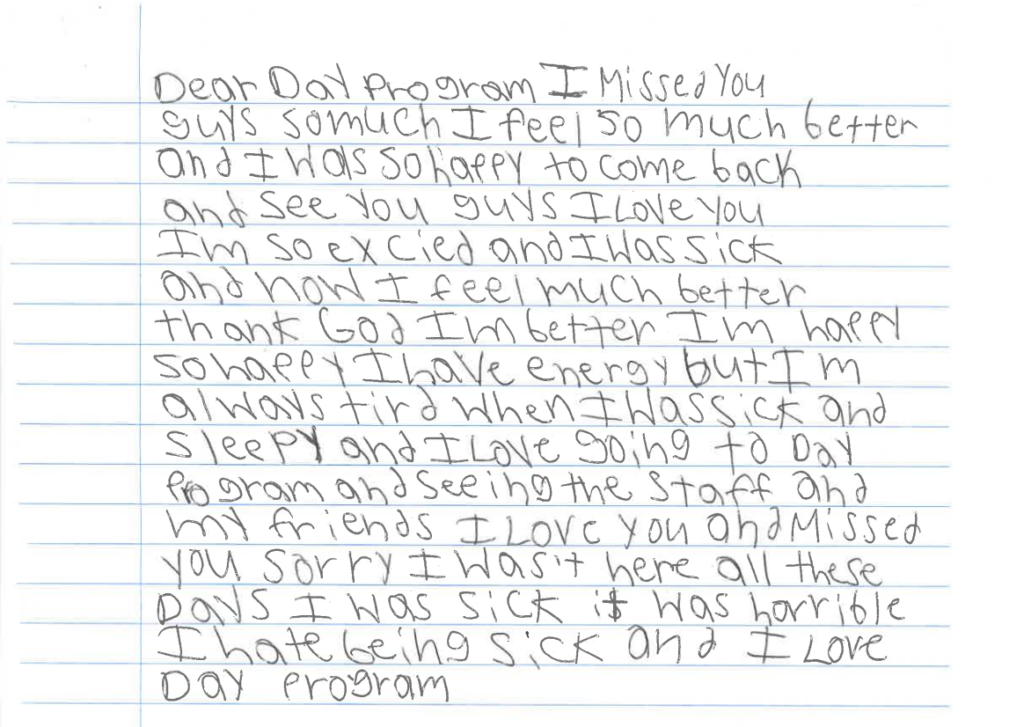 Dear Day Program I Missed You
guys somuch I feel so much better
and I was so happy to come back
and see you guys I Love you
I'm so excied and I was sick
and now I feel much better
thank God I'm better I'm happy
so happy I have energy but I'm
always tird when I was sick and
sleepy and I Love going to Day
Program and seeing the staff and
my friends I Love you and Missed
you sorry I was't here all these
Days I was sick it was horrible
I hate being sick and I Love
Day program